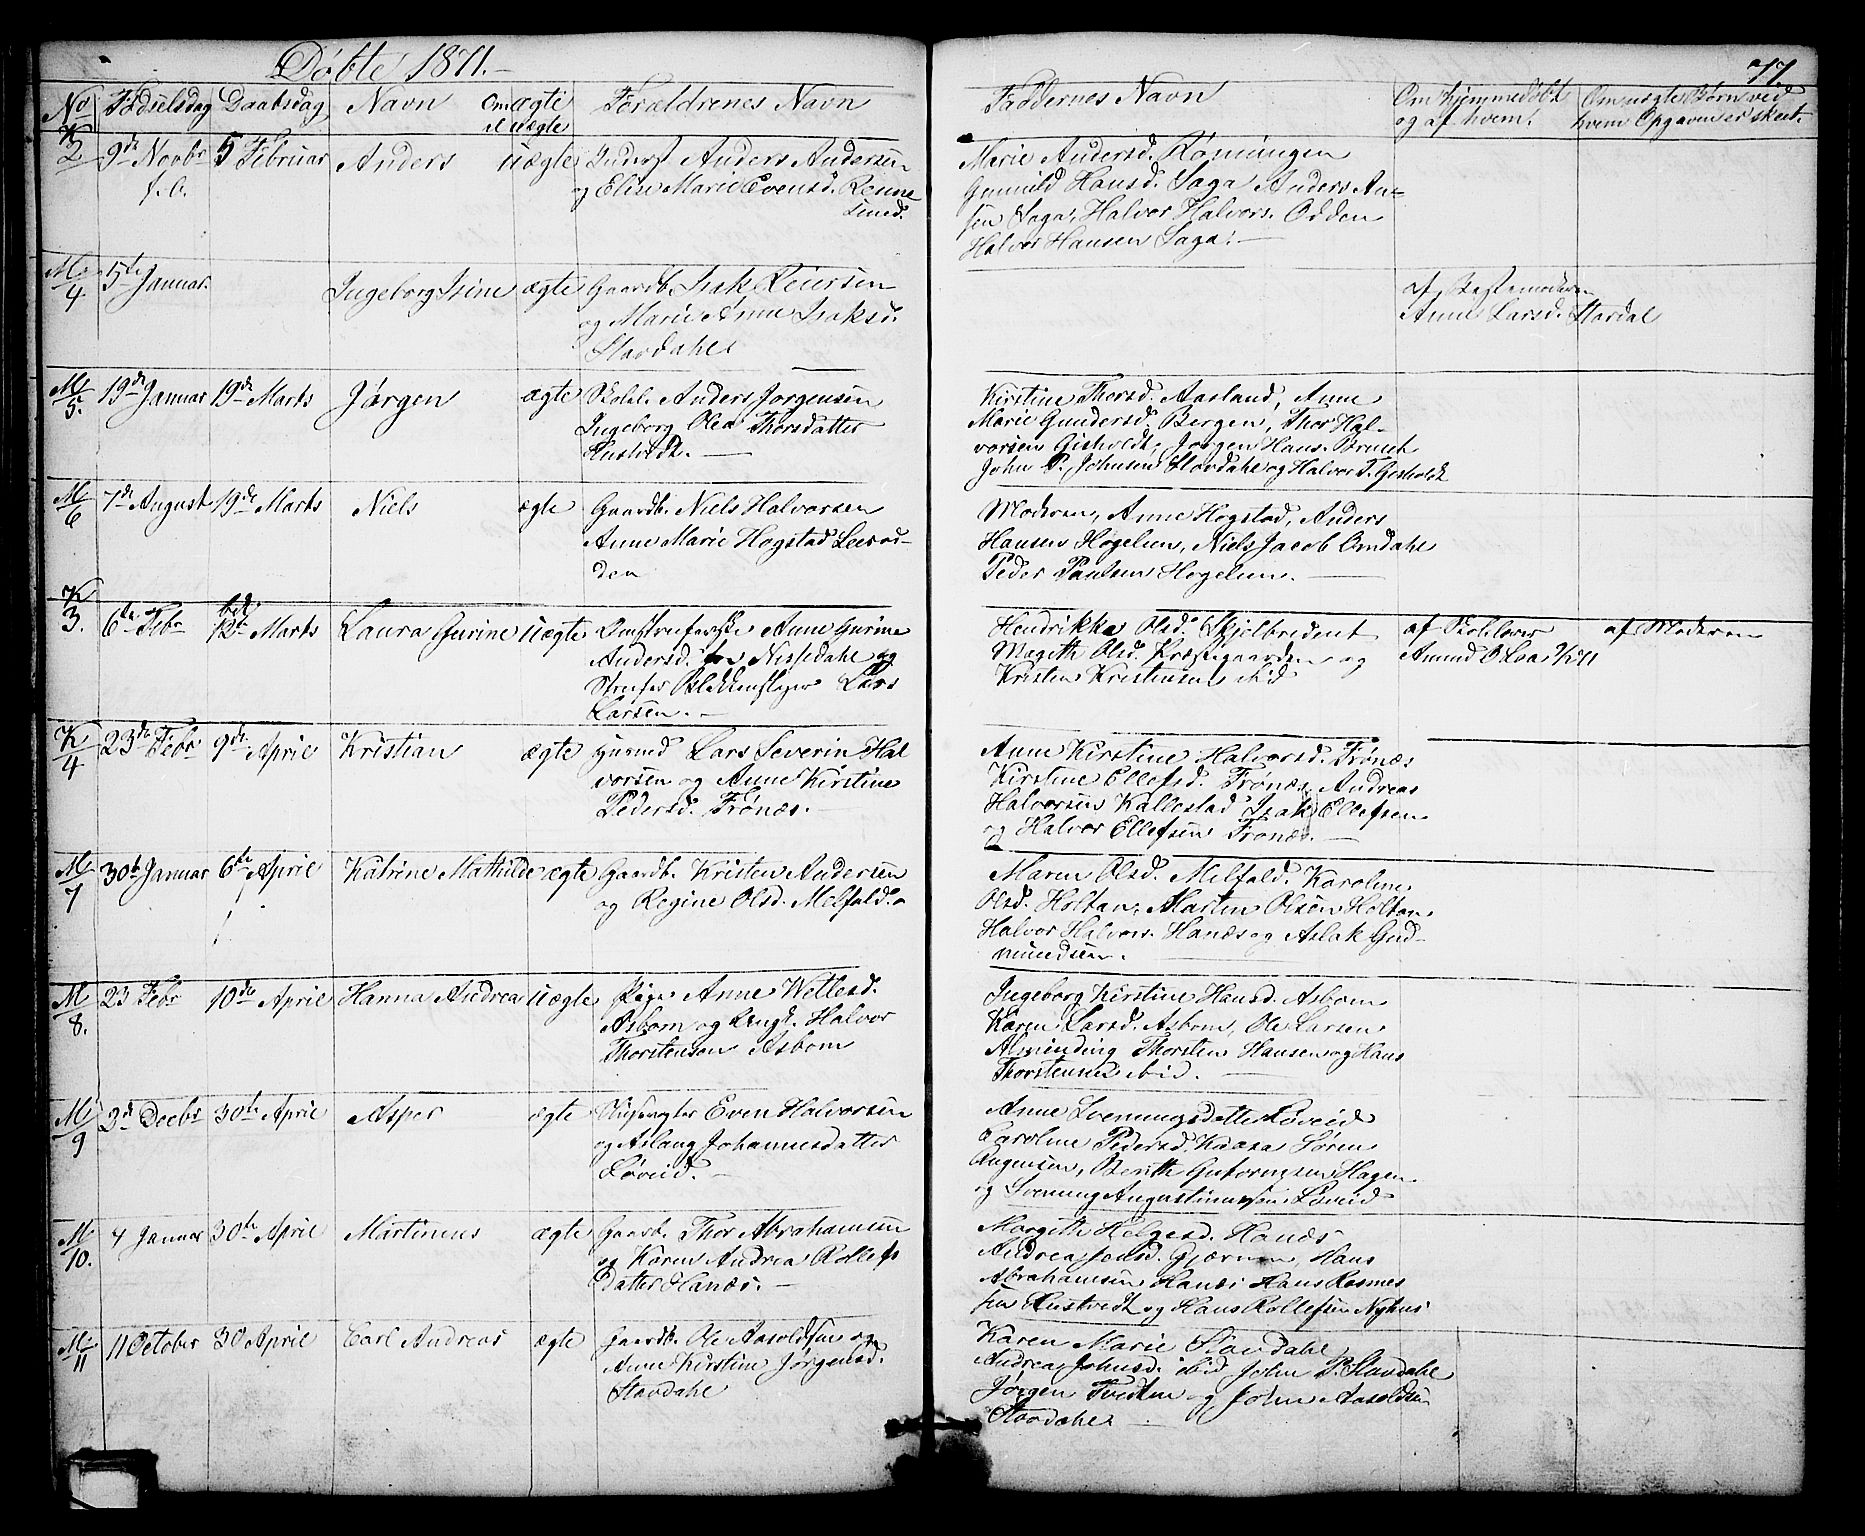 Døbte 1871.
77.
No Fødselsdag Daabsdag Navn Om ægte Forældrenes Navn
el uægte
Faddernes Navn
Om hjemmedøbt
og af hvem.
Om uægte Børn ved
hvem Opgaven er skeet.
K
2 9de Novbr 5 Februar Anders uægte Anders Andersen
f. A. og Elise Marie Evensd.
Marie Andersd. Rønningen
Gunild Hansd. Saga Anders An=
sen Saga, Halvor Halvors. Odden
Halvor Hansen Saga.
M
4 5te Januar. Ingeborg Isine ægte Gaardb. Isak Reiersen
og Marie Anne Isaksd.
Stavdahl
af Bestemoderen
Anne Larsd. Stavdal
M
5. 19de Januar 19de Marts Jørgen ægte Anders Jorgensen
Ingeborg Olea Thorsdatter
Rustvedt.
Kirstine Thorsd. Aasland, Anne
Marie Gundersd. Bergen, Thor Hal-
vorsen Gisholdt, Jørgen Hans.
John P. Johnsen Stavdahl og Halvor T. Gisholdt
M
6 7de August 19de Marts Niels ægte Gaardb. Niels Halvorsen
Anne Marie Hogstad
den
Moderen, Anne Hogstad, Anders
Hansen Hogelien, Niels Jacob Omdahl
Peder Paulsen Hogelien.
K
3. 6te Febr 12te Marts Laura Gurine uægte Anne Gurine
Andersd. fra Nissedahl og
Lars
Larsen.
Hendrikke Olsd. Skjelbredeit
Magith Olsd. Præstegaarden og
Kristen Kristensen ibid
af Skolelærer
Amund O.
af Moderen
K
4 23de Febr 9de April Kristian ægte Husmd Lars Severin Hal
vorsen og Anne Kirstine
Pedersd. Frønæs.
Anne Kirstine Halvorsd. Frønæs
Kirstine Ellefsd. Frønæs, Andreas
Halvorsen Kallestad Isak Ellefsen
og Halvor Ellefsen Frønæs.
M
7 30te Januar 6te April Katrine Mathilde ægte Gaardb. Kristen Andersen
og Regine Olsd. Melfald.
Maren Olsd. Melfald. Karoline
Olsd. Holtan, Martin Olsen Holtan
Halvor Halvors. Hanæs og Aslak Gud-
mundsen.
M
8. 23 Febr 10de April Hanna Andrea uægte Pige Anne Wetlesd.
Asbom og Ungk. Halvor
Thorstensen Asbom
Ingeborg Kirstine Hansd. Asbom
Karen Larsd. Asbom, Ole Larsen
Alminding Thorsten Hansen og Hans
Thorstensen ibid.
M
9 2de Decbr 30te April Asper ægte Even Halvorsen
og Aslaug Johannesdatter
Løveid.
Anne Sveningsdatter Løveid
Caroline Pedersd. Kaasa Søren
Hagen
og Svenung Løveid
M
10. 4 Januar 30te April Martinius ægte Gaardb. Thor Abrahamsen
og Karen Andrea Rollefs
Datter Hanæs.
Margith Helgesd. Hanæs
Andrea Jensd. Hans
Abrahamsen Hanæs Hans Rasmes
sen Rustvedt og Hans Rollefsen Nyhus
M
11 11 October 30 April Carl Andreas ægte Gaardb. Ole Aasoldsen og
Anne Kirstine Jørgensd.
Stavdahl
Karen Marie Stavdahl
Andrea Johnsd. ibid John P. Stavdahl
Jørgen Tveiten og John Aasoldsen
Stavdahl